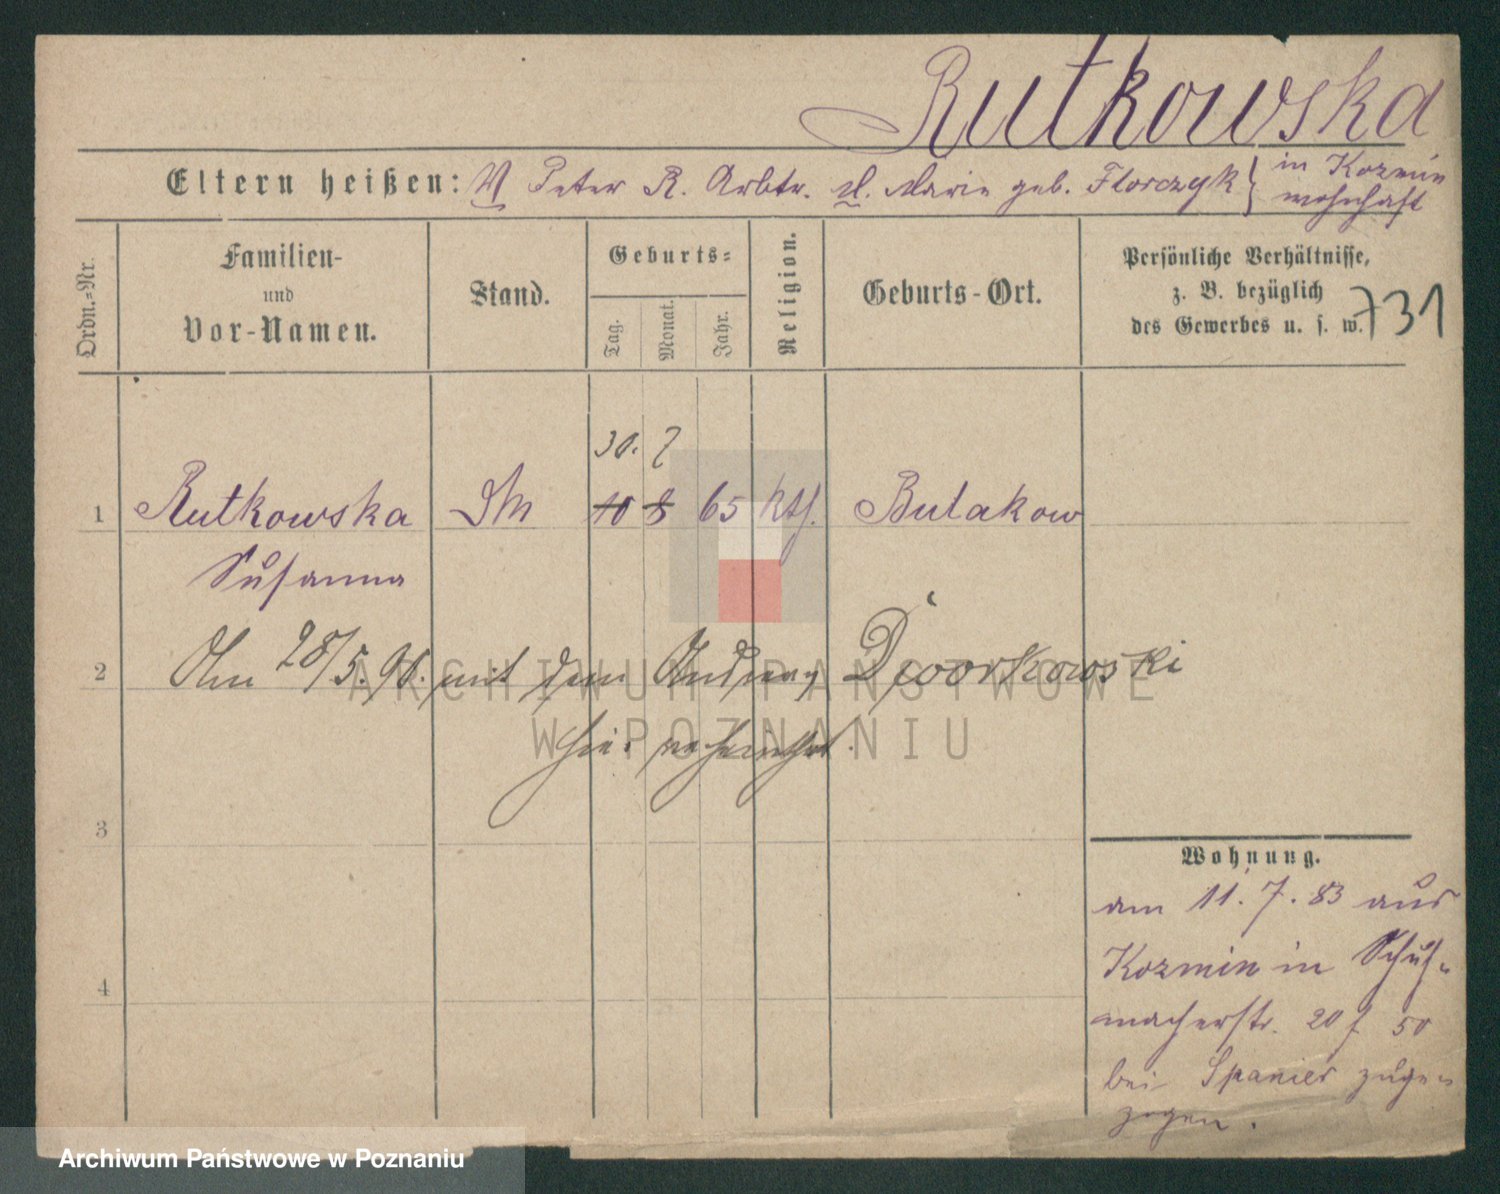 Rutkowska
Eltern heißen: V Peter R. Arbtr. M. Marie geb. Florczyk } in Kozmin
wohnhaft
Ordn.=Nr.
Familien-
und
Vor-Namen.
Stand.
Geburts=
Tag.
Monat.
Jahr.
Religion.
Geburts-Ort.
Persönliche Verhältnisse,
z. B. bezüglich
des Gewerbes u. s. w.
731
30. 7
1 Rutkowska 10 8 65 kth. Bulakow
Susanna
2 Am 28/5.96. mit dem Andreas Dworkowski
hier verheirathet.
3
4
Wohnung.
am 11.7.83 aus
Kozmin in Schuh-
macherstr. 20 f 50
bei Spanier zuge-
zogen.
ARCHIWUM PAŃSTWOWE
W POZNANIU
Archiwum Państwowe w Poznaniu